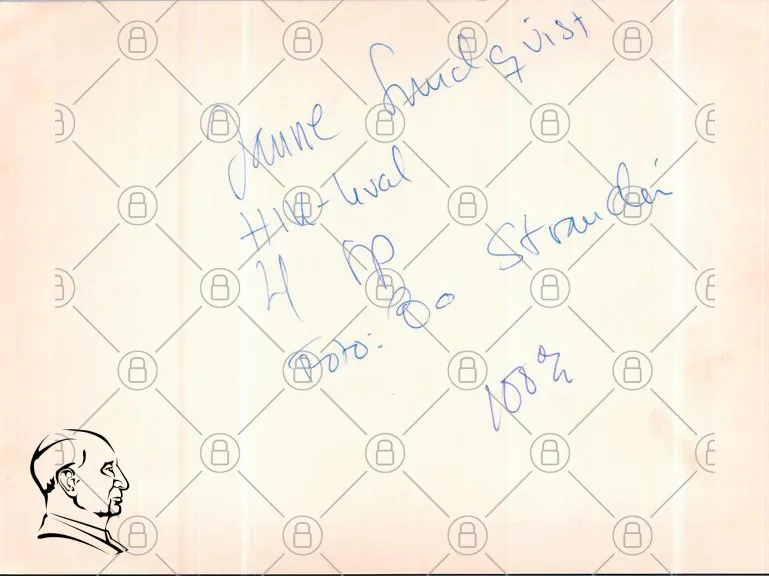 Janne Lundqvist
HIV-kval
4 sp
Foto: Bo Strandén
108%